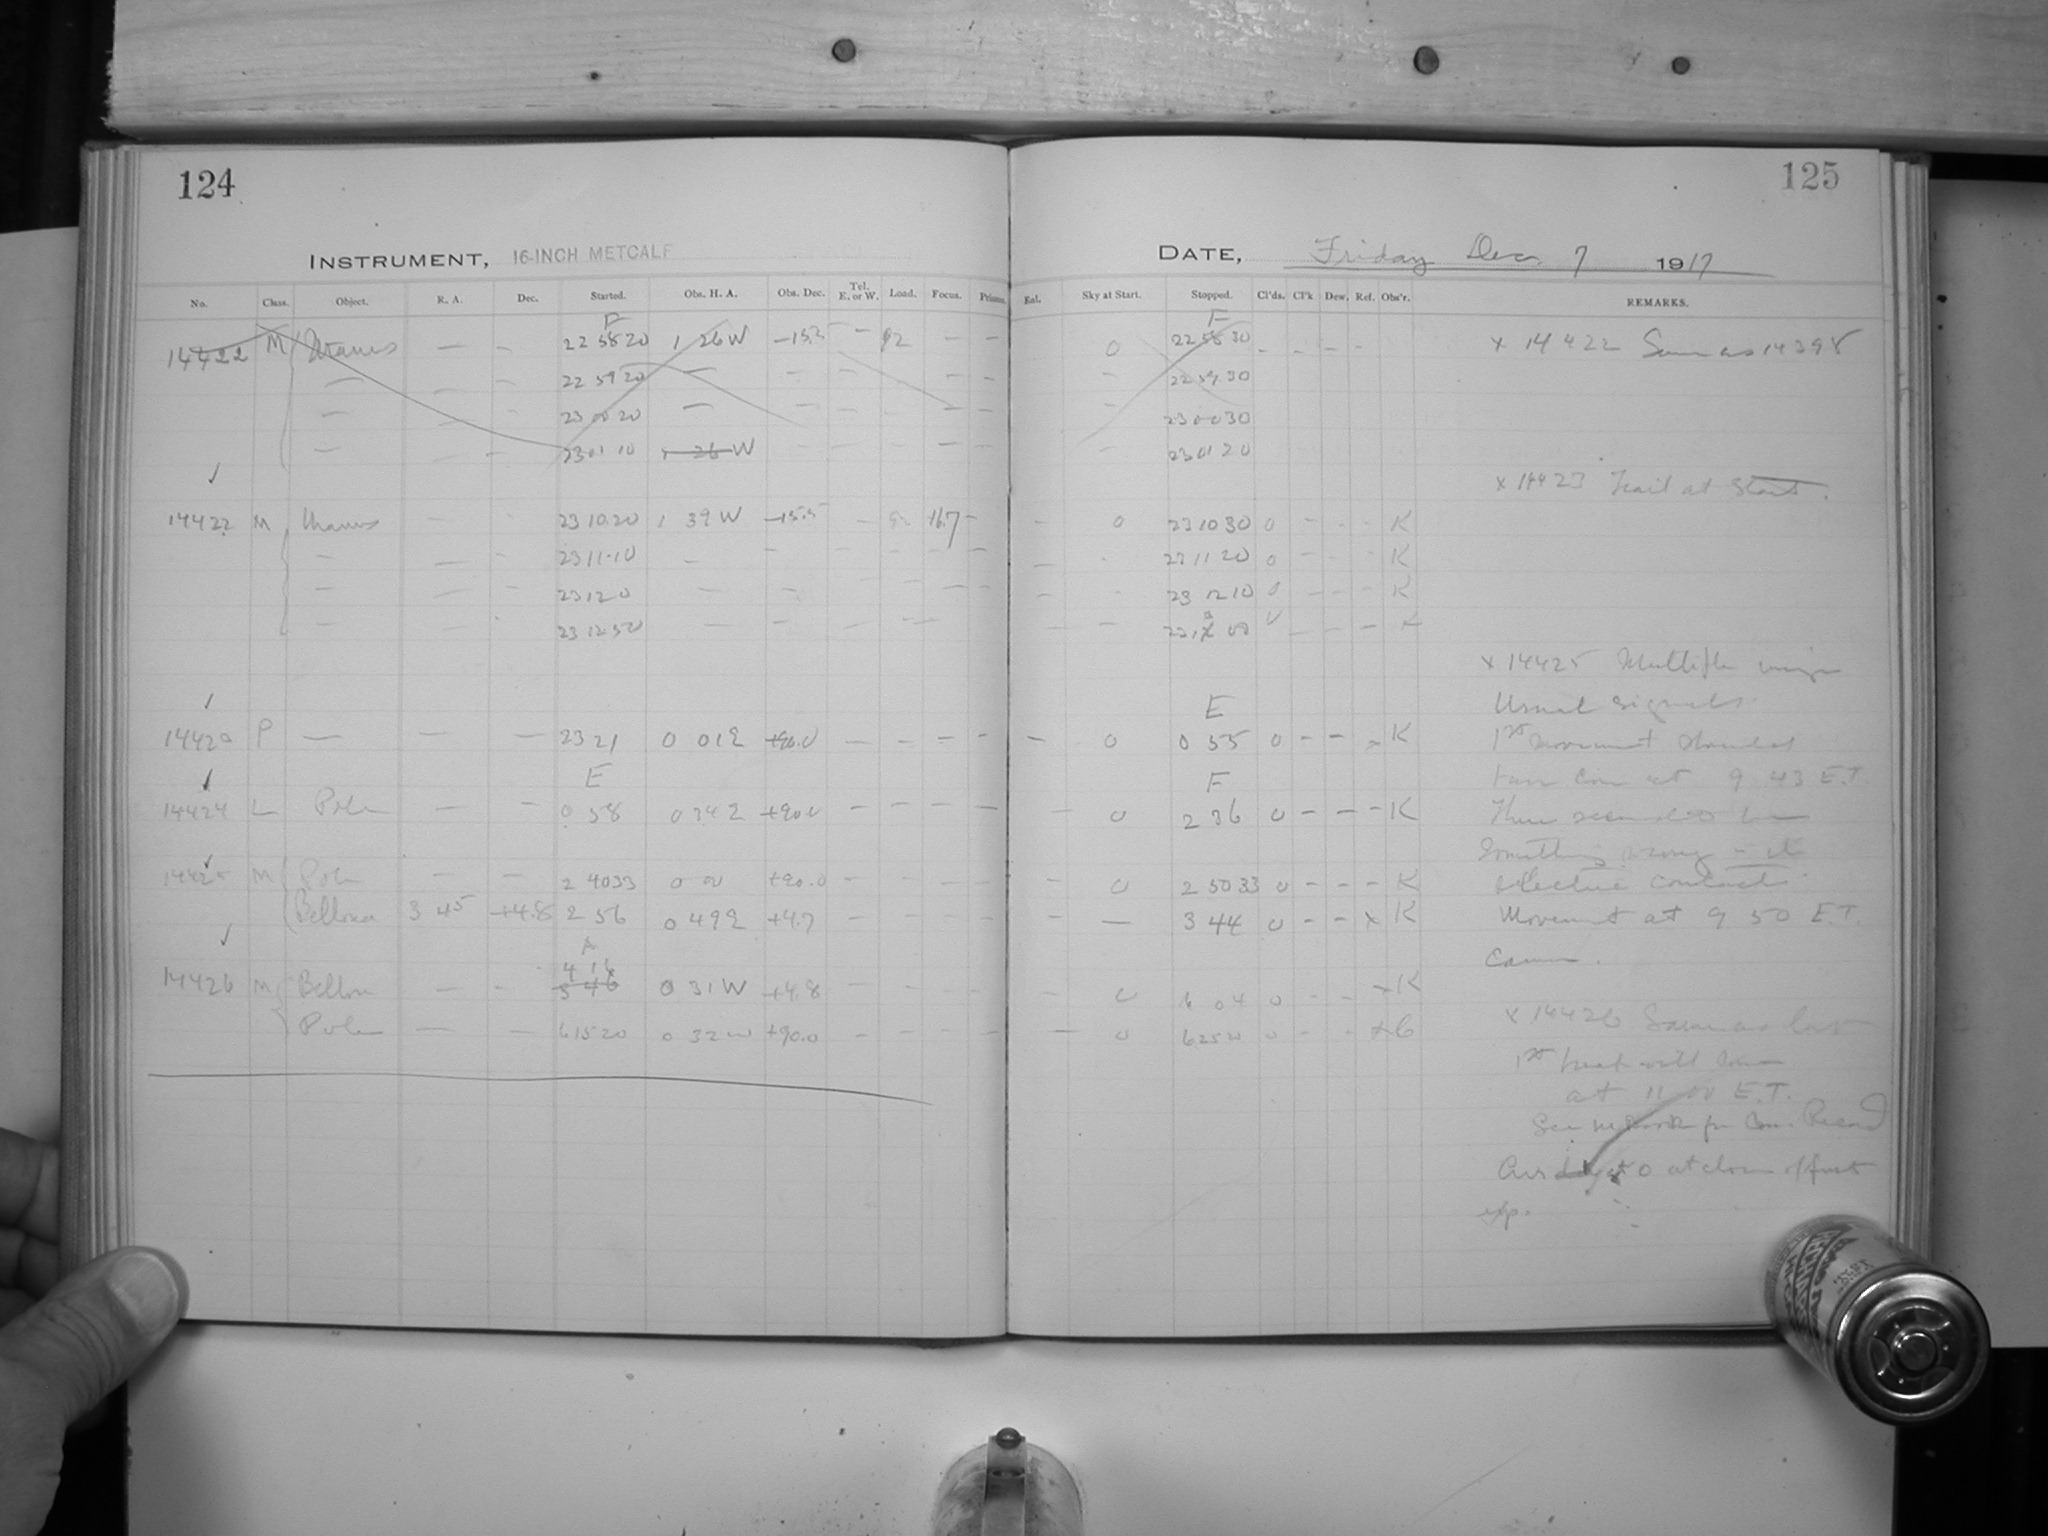 124
125
INSTRUMENT, 16-INCH METCALF
DATE, Friday Dec. 7 1917
No. Class. Object. R. A. Dec. Started. Obs. H. A. Obs. Dec. Tel. E. or W. Load. Focus. Prisms.
Eal. Sky at Start. Stopped. Cl'ds. Cl'k Dew. Ref. Obs'r. REMARKS.
F
14422 M Uranus — — 22 58 20 1 26 W —15.5 — 92 — —
0 22 58 30 - - - - x 14422 Same as 14398
— — — 22 59 20 — — — —
— 22 59 30
— — — 23 00 20 — — — —
— 23 00 30
— — — 23 01 10 1 26 W — —
— 23 01 20
x 14423 Trail at Start.
14422 M Uranus — — 23 10 20 1 39 W —15.5 — 92 16.7 —
— 0 23 10 30 0 - - - K
— — — 23 11 10 — — — — — —
— - 23 11 20 0 - - - K
— — — 23 12 0 — — — — — —
— - 23 12 10 0 - - - K
— — - 23 12 50 — — — — —
— — 0 - - -
x 14425 Multiple
Usual signals.
E
P — — — 23 21 0 01 E +90.0 — — — — —
— 0 0 55 0 - - x K 1st movement should
E
F
have come at 9 43 E.T.
14424 L Pole — — 0 58 0 34 E +90.0 — — — — —
— 0 2 36 0 - - - K There seemed to be
something wrong in the
14425 M Pole — — 2 40 33 0 00 +90.0 — — — — —
— 0 2 50 33 0 - - - K electric contacts
Bellona 3 45 +4.8 2 56 0 49 E +4.7 — — — — —
— — 3 44 0 - - x K Movement at 9 50 E.T.
came.
4 16
14426 M Bellona — — 5 46 0 31 W +4.8 — — — — —
— 0 6 04 0 - - x K
x 14426 Same as last
Pole — — 6 15 20 0 32 W +90.0 — — — — —
— 0 6 25 20 0 - -
1st
at 11 00 E.T.
See for Record
at 0 at close of first
exp.